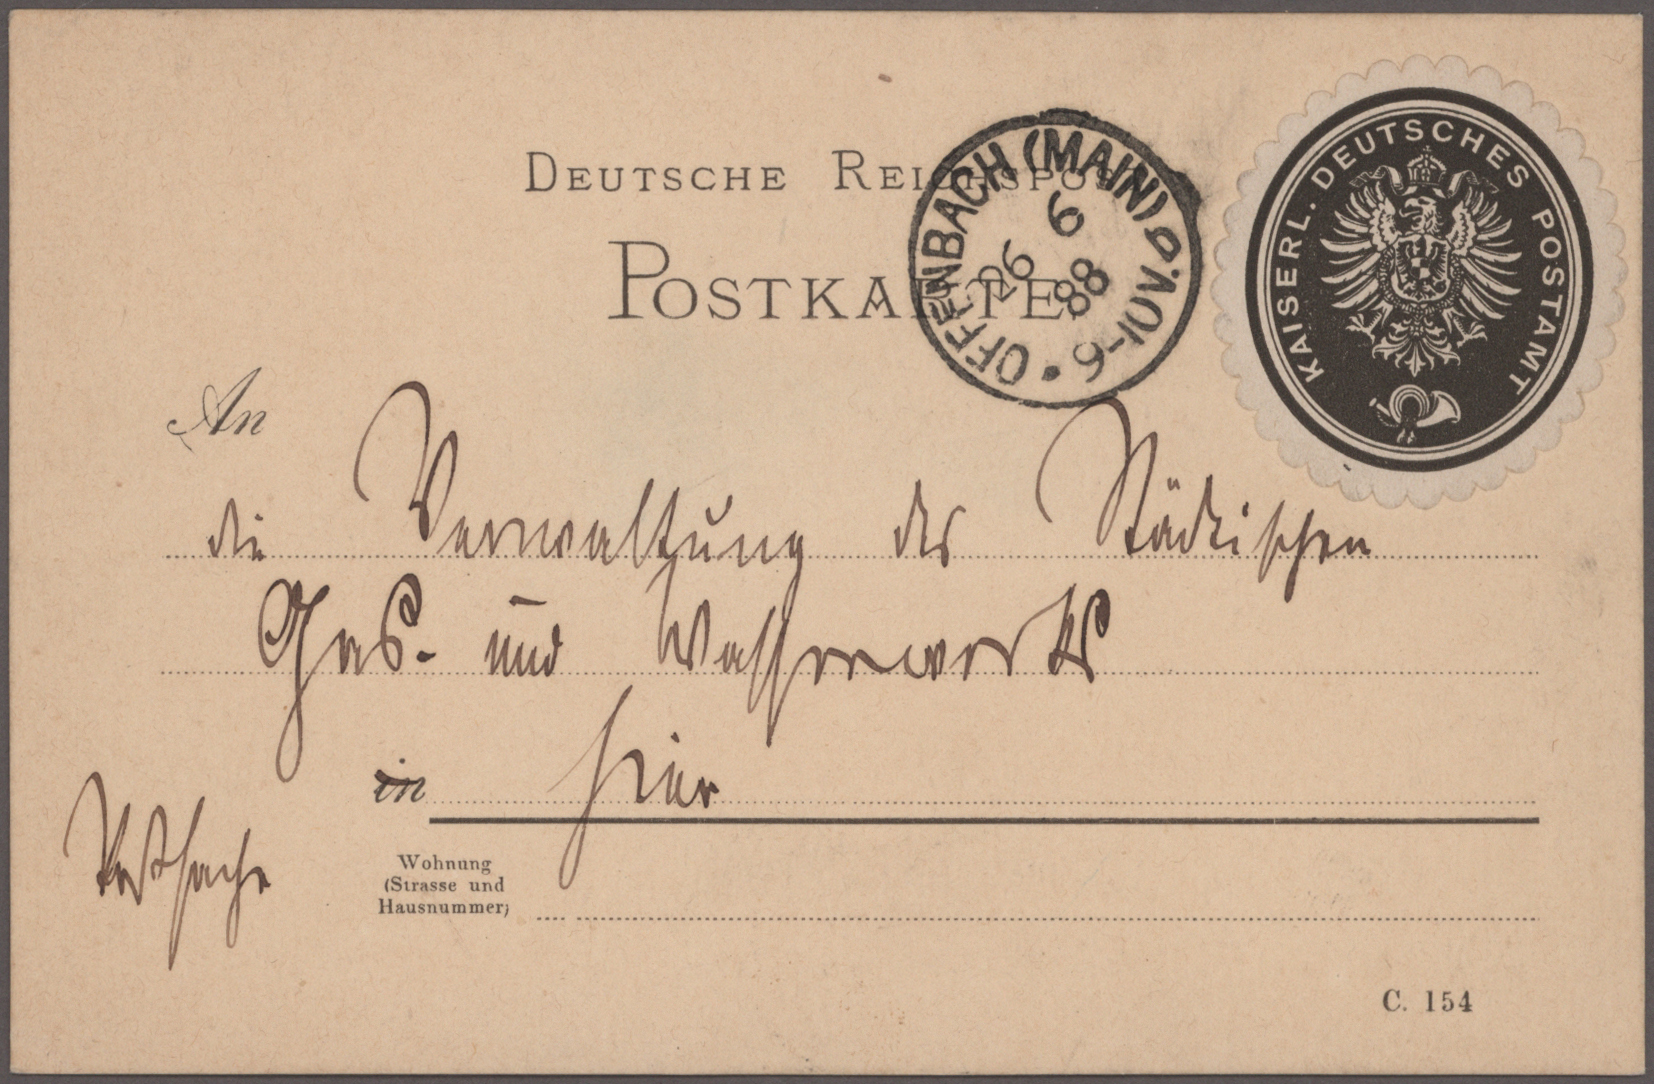 DEUTSCHE REICHSPOST
POSTKARTE
OFFENBACH (MAIN)
26 6
88
9-10V.
KAISERL. DEUTSCHES POSTAMT
An
die Verwaltung des Städtischen
Gas- und Wasserwerks
in hier
Postsache
Wohnung
(Strasse und
Hausnummer)
C. 154